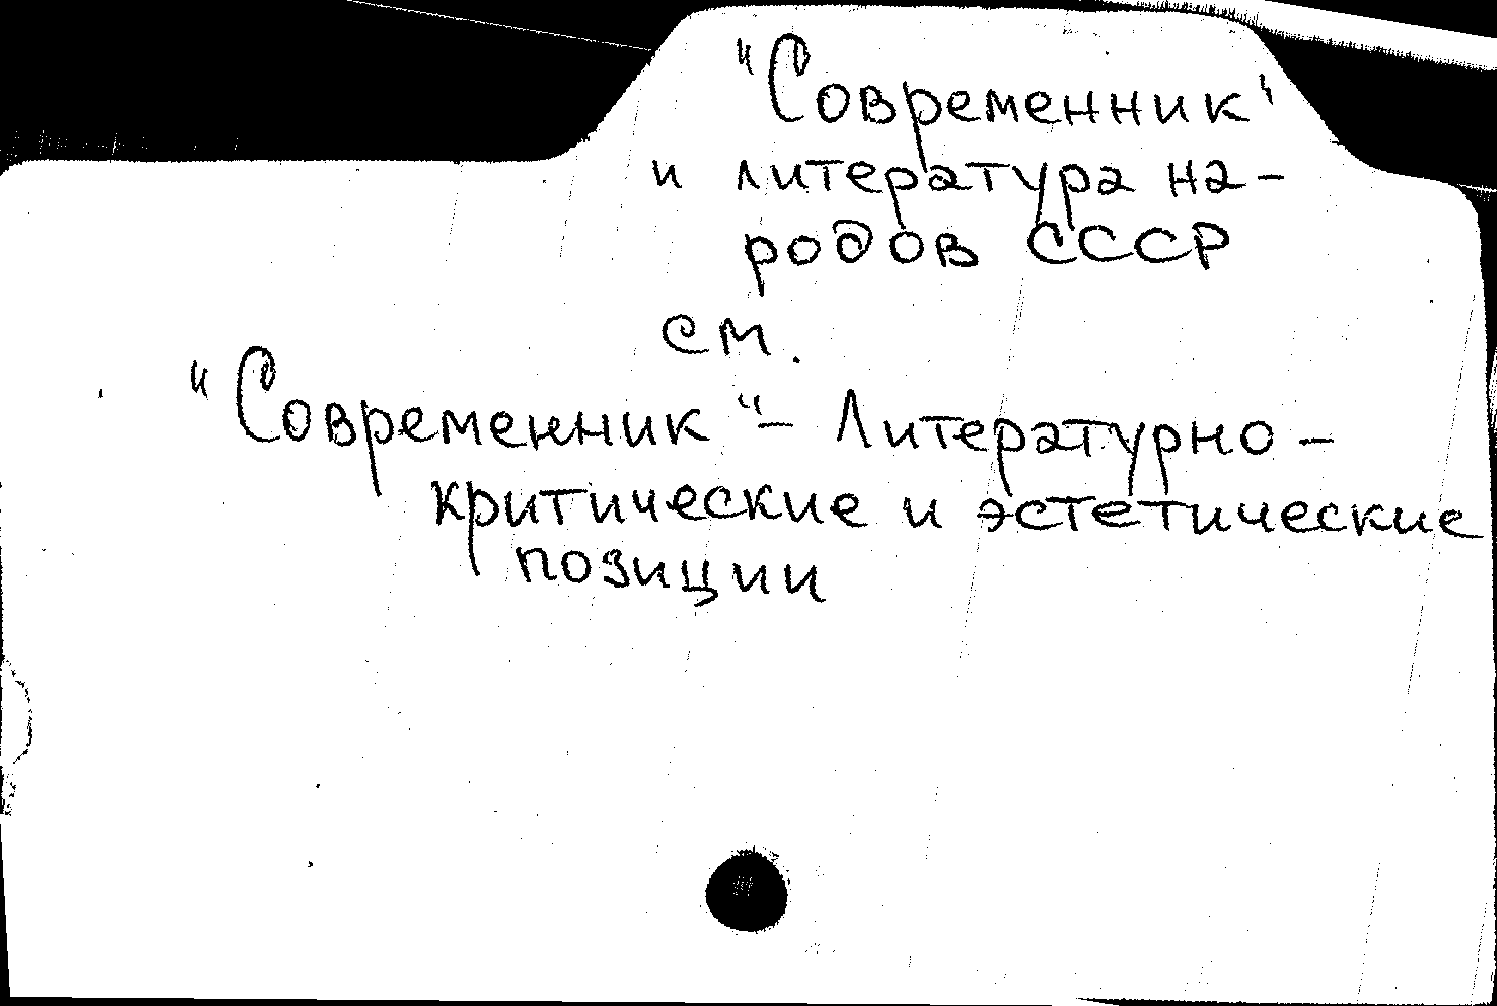 "Современник"
и литература на-
родов СССР
см.
"Современник" - Литературно -
критические и эстетические
позиции